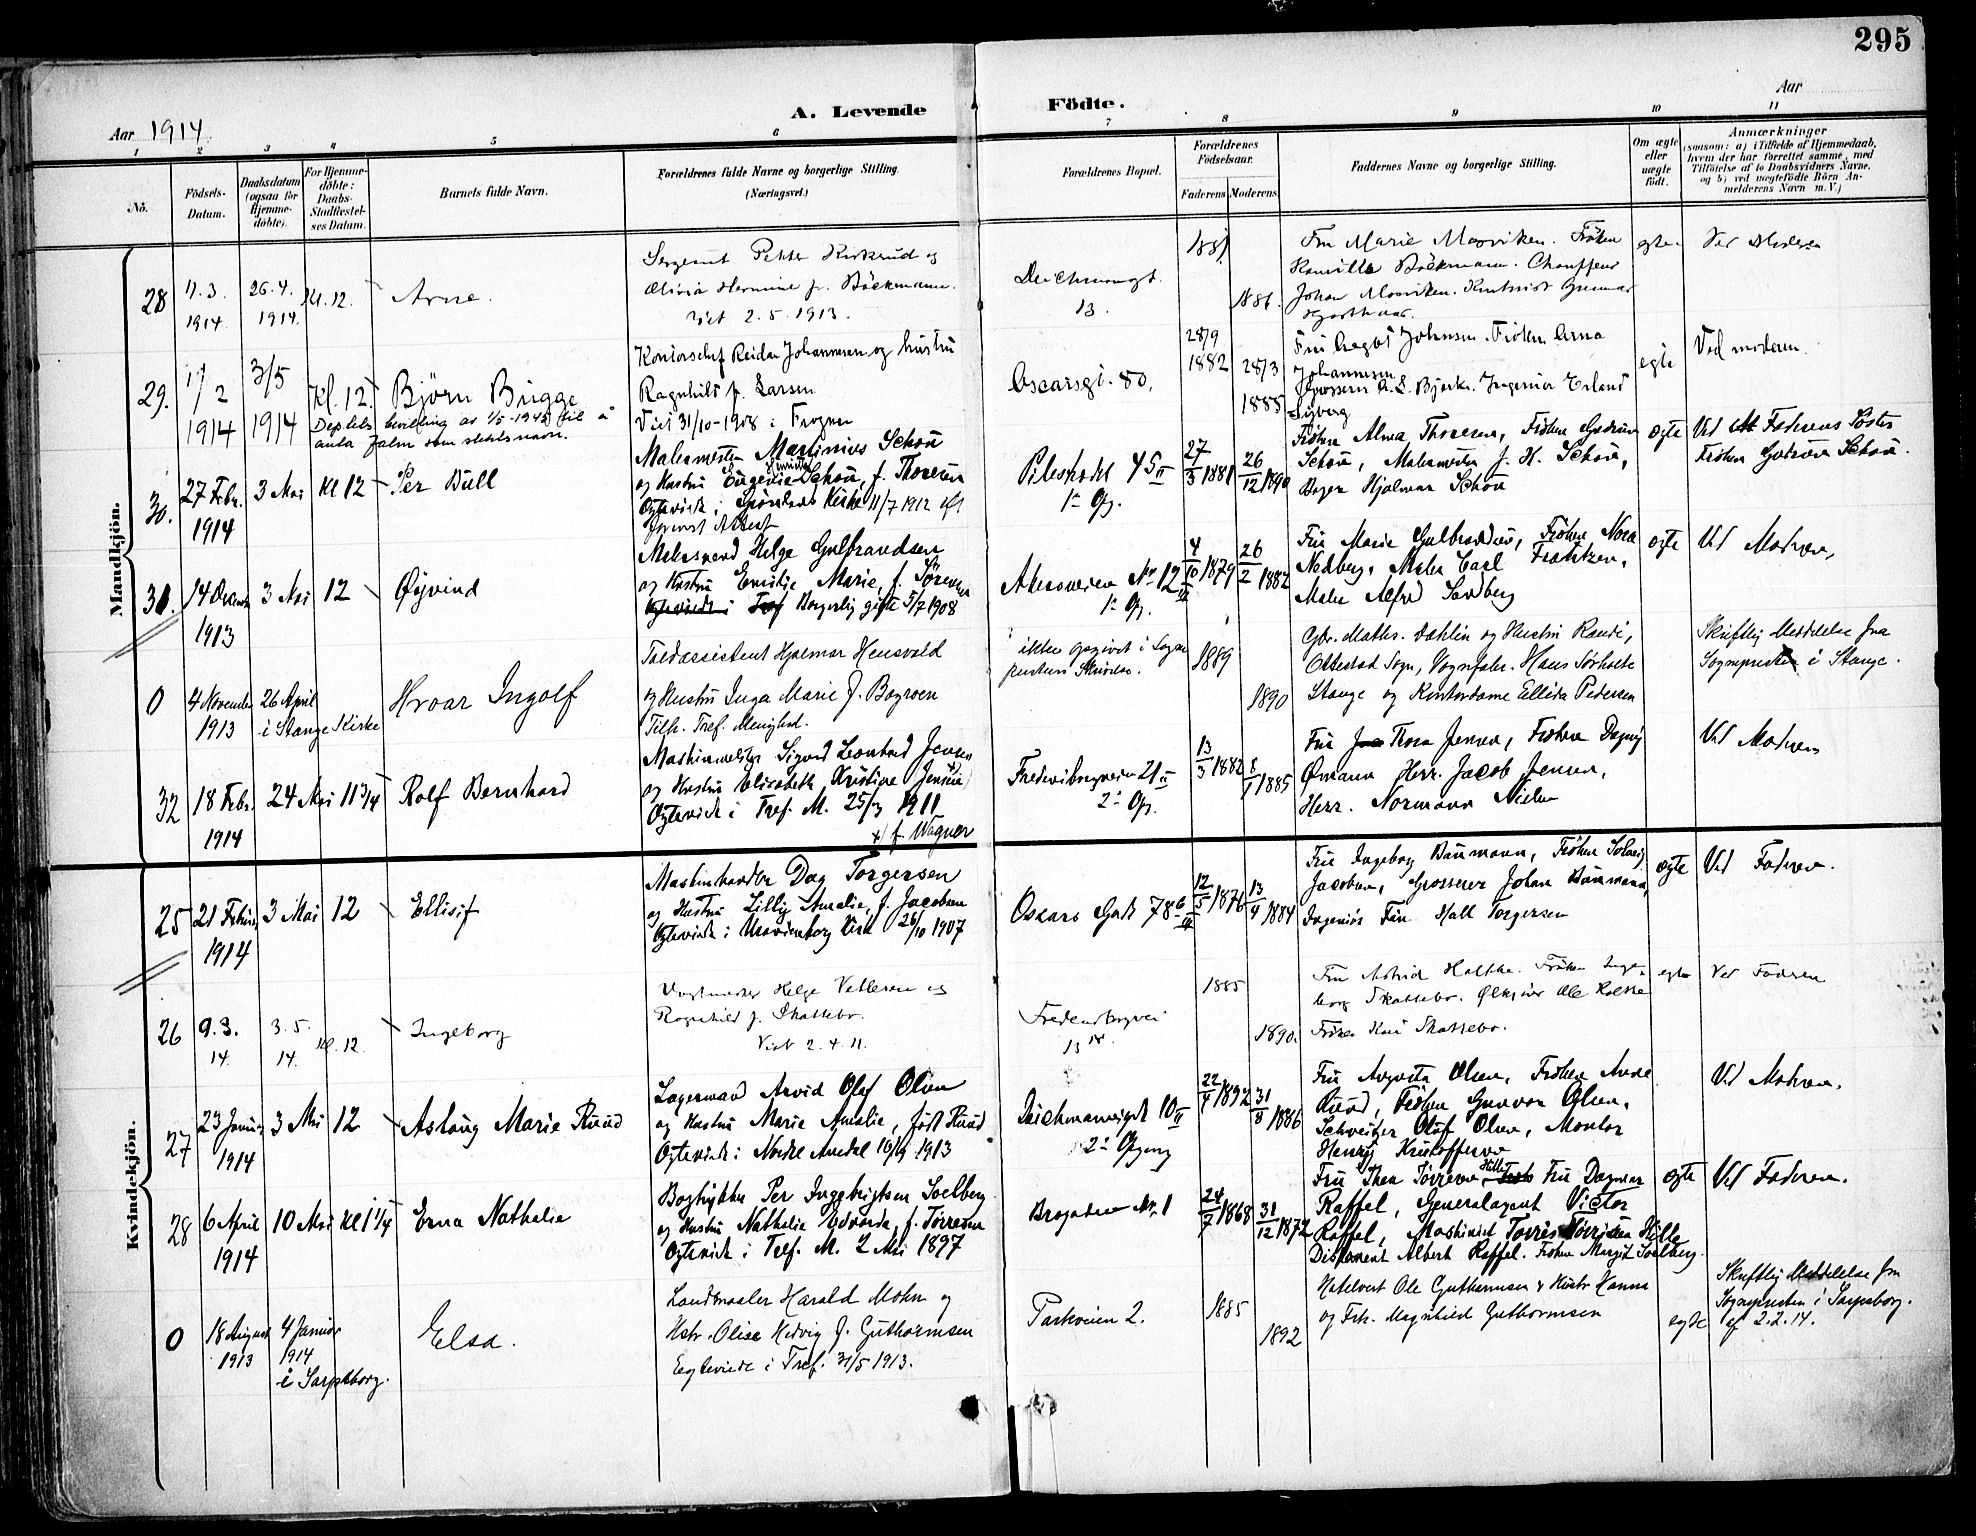 295
A. Levende Födte.
Aar 1914
Aar
1 2 3 4 5 6 7 8 9 10 11
No.
Födsels-Datum.
Daabsdatum (ogsaa for Hjemme-döbte).
For Hjemme-döbte: Daabs-Stadfæstel-ses Datum.
Barnets fulde Navn.
Forældrenes fulde Navne og borgerlige Stilling. (Næringsvei.)
Forældrenes Bopæl.
Forældrenes Födselsaar.
Faderens Moderens
Faddernes Navne og borgerlige Stilling.
Om ægte eller uægte födt.
Anmærkninger
(saasom: a) i Tilfælde af Hjemmedaab,
hvem der har forrettet samme, med
Tilföielse af to Daabsvidners Navne.
og b) ved uægtefödte Börn An-
melderens Navn m. V.)
Mandkjön.
28 11.3. 1914. 26.4. 1914. Kl. 12. Arne.
Sergeant Petter Kirkerud og
Olivia Hermine f. Böckmann.
Viet 2.5.1913.
Deichmansgt. 13.
1881 1886.
Fru Marie Mosviken. Fröken
Kamilla Böckmann. Chauffeur
Johan Mosviken. Gunnar
egte Ved Moderen
29. 1/2 1914 3/5 1914 Kl. 12. Björn Brigge
Deptets bevilling av 1/5-1945 til å
anta Falm som slektsnavn.
Kontorschef Reidar Johannesen og hustru
Ragnhild f. Larsen
Viet 31/10-1908 i Frogner
Oscarsgt. 80.
28/9 1882 28/3 1885
Fru Dagot Johnsen. Fröken Arna
Johannesen
Grosserer A. L. Bjerke. Ingeniör Erland
egte Ved moderen.
30. 27 Febr. 1914 3 Mai Kl 12 Per Bull
Malermester Martinius Schou
og Hustru Eugenie Henriette Schou, f. Thoresen
Ogteviede i Kirke 11/7 1912
Pilestrædet 45 II
1ste Opg.
27/3 1881 26/12 1890
Fröken Alma Thoresen, Fröken Gudrun
Schou, Malermester J. H. Schou,
Bager Hjalmar Schou
ægte Ved Faderens Söster
Fröken Gudrun Schou.
31. 14 Decemb 1913 3 Mai 12 Øyvind
Malersvend Helge Gulbrandsen
og Hustru Emilie Marie, f. Sörensen
Borgerlig gifte 5/7 1908
Akersveien No 12 III
1ste Opg.
4/10 1879 26/2 1882
Fru Marie Gulbrandsen, Fröken Nora
Nedberg, Maler Carl Frantzen,
Maler Alfred Sandberg
ægte Ved Moderen,
0 4 November 1913 26 April i Stange Kirke Hroar Ingolf
Toldassistent Hjalmar Hensvold
og Hustru Inga Marie f. Bogroen
Tilh. Tref. Menighed.
ikke opgivet i Sogne
prestens Skrivelse.
1889 1890
Gbr. Maths. Dahlin og Hustru Randi,
Ottestad Sogn, Vognfabr. Hans Sörholte
Stange og Kontordame Ellida Pedersen
Skriftlig Meddelelse fra
Sognepresten i Stange.
32 18 Febr. 1914 24 Mai 11 3/4 Rolf Bernhard
Sigurd Leonhard Jensen
og Hustru Elisabeth Kristine Jensen x)
Ogteviede i Tref. M. 25/ 1911
x) f. Wagner
Fredensborgveien 21 II
2den Opg.
13/3 1882 8/1 1885
Fru Thora Jensen, Fröken Dagny
Ømann Herr. Jacob Jensen,
Herr. Normann Nielsen
Ved Moderen
Kvindekjön.
25 21 Februar 1914 3 Mai 12 Ellisif
Maskinhandler Dag Torgersen
og Hustru Lilly Amalie, f. Jacobsen
Ogteviede i Uranienborg Kirke 26/10 1907
Oscars Gade 78
12/5 1876 13/4 1884
Fru Ingeborg Baumann, Fröken Solveig
Jacobsen, Grosserer Johan Baumann,
Ingeniör Finn Hall Torgersen
ægte Ved Faderen.
26 9.3. 14. 3.5. 14. Kl. 12. Ingeborg
Vagtmester Helge Vettesen og
Ragnhild f. Skattebo.
Viet 2.4.11.
Fredensborgvei
13
1885 1890.
Fru Astrid Holthe. Fröken Inge-
borg Skattebo. Ole Holthe
Fröken Kari Skattebo.
egte Ved Faderen
27 23 Januar 1914 3 Mai 12 Aslaug Marie Ruud
Lagermand Arvid Olaf Olsen
og Hustru Marie Amalie, född Ruud
Ogteviede i Nordre Aurdal 19/9 1913
Deichmannsgt 10 II
2den Opgang
22/4 1892 31/8 1886
Fru Augusta Olsen, Fröken Anne
Ruud, Fröken Gunvor Olsen,
Schweitzer Olaf Olsen, Montör
Henry Kristoffersen
Ved Moderen.
28 6 April 1914 10 Mai Kl 1 1/4 Erna Nathalie
Bogtrykker Per Ingebrigtsen Soelberg
og Hustru Nathalie Edvarda, f. Törresen
Ogteviede i Tref. M. 2 Mai 1897
Brogaden No. 1
24/7 1868 31/12 1872
Fru Thea Törresen Hille Fru Dagmar
Raffel, Generalagent Victor
Raffel, Maskinist Torris Törrisen Hille
Disponent Albert Raffel. Fröken Margit Soelberg.
ægte Ved Faderen.
0 18 August 1913 4 Januar 1914 i Sarpsborg. Elsa.
Landmaaler Harald Mohn og
Hstr. Olise Hedvig f. Guthormsen
Egteviede i Tref. 31/5 1913.
Parkveien 2.
1885 1892
Hotelvert Ole Guthormsen & Hustr Hanna
og Frk. Magnhild Guthormsen
egte
Skriftlig Meddelelse fra
Sognepresten i Sarpsborg.
af 2.2.14.